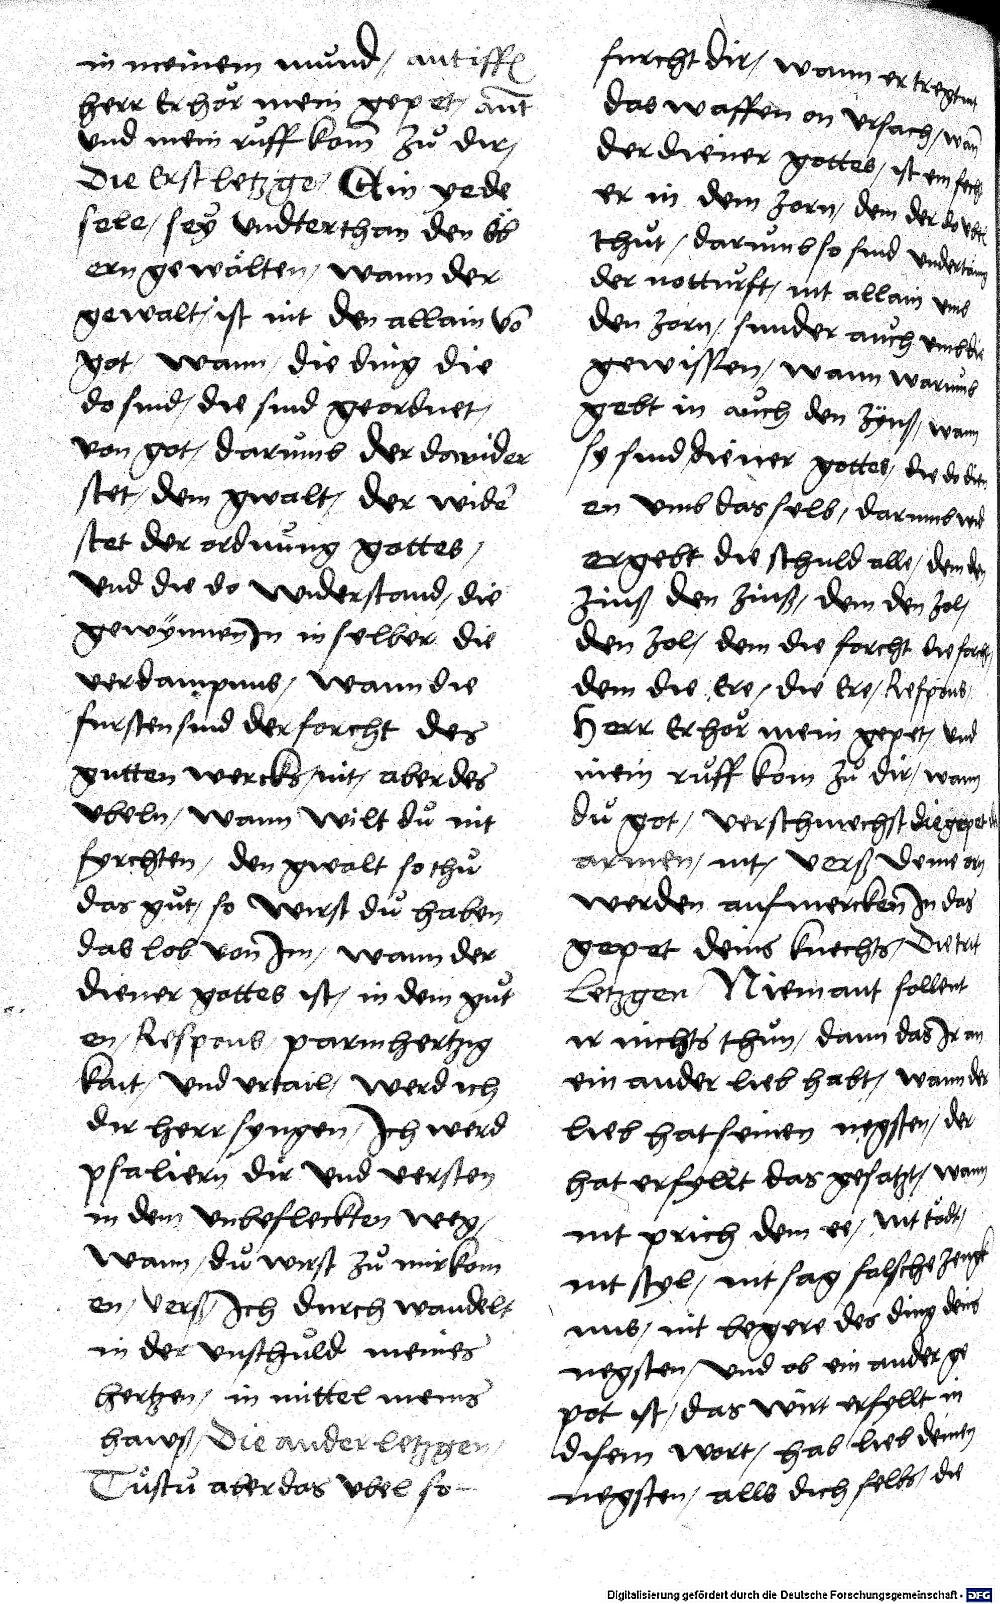 in meinem mund / antiff
herr Erhör mein gepet / ant
vnd mein růff kom̄ zů dir /
Die Erst letzge / Ein yede
sele / sey vndterthan den öb
ern gewälten / wann der
gewalt / ist nit den allain võ
got / wann / die ding die
do sind / die sind geordnet /
von got / darůmb der dawider
stet / dem gwalt / der wider
stet der ordnůng gottes /
vnd die do widerstand / die
gewÿnnen In in selber die
verdampnus / wann die
fursten sind der forcht des
gutten wercks / nit / aber des
vbeln / wann wilt dů nit
fyrchten / den gwalt so thů
das gůt / so wirst dů haben
das lob von Im / wann der
diener gottes ist / in dem gůt
en / Respons / parmhertzig
kait / vnd vrtail / werd ich
dir herr syngen / Ich werd
psaliern dir vnd versten
in dem vnbefleckten weg /
wann / dů wirst zů mir kom
en / verß Ich durch wandelt
in der vnschůld meines
hertzen / in mittel meins
hawß / Die ander letzgen /
Tůstů aber das vbel so
furcht dir / wann er tregt nit
das waffen on vrsach / wañ
der diener gottes / ist ein fech
er in dem zorn / dem der do vbel
thůt / darůmb so sind vndertänig
der notturft / nit allain vmb
den zorn / sunder aůch vmb die
gewissen / wann warumb
gebt in aůch den zÿnß / wann
sy sind diener gottes / die do dien
en vmb das selb / darumb wid
ergebt die schuld alle / dem den
zinß den zinß / dem den zol /
den zol / dem die forcht die forcht /
dem die Ere / die Ere / Respons /
Herr Erhör mein gepet / vnd
mein růff kom zů dir / wann
dů got / verschmechst die gepet d
armen / nit / verß Deine orn
werden aufmercken In das
gepet deins knechts / Die trit
letzgen / Niemant sollent
ir nichts thůn / dann das Ir an
ein ander lieb habt / wann der
lieb hat seinen negsten / der
hat erfyllt das gesatzt / wann
nit prich dem ee / nit tödt /
nit styl / nit sag falsche zeugk
nus / nit begere des ding deins
negsten / vnd ob ein ander ge
pot ist / das wirt erfyllt in
disem wort / hab lieb deinen
negsten / alls dich selbs / die
Digitalisierung gefördert durch die Deutsche Forschungsgemeinschaft - DFG